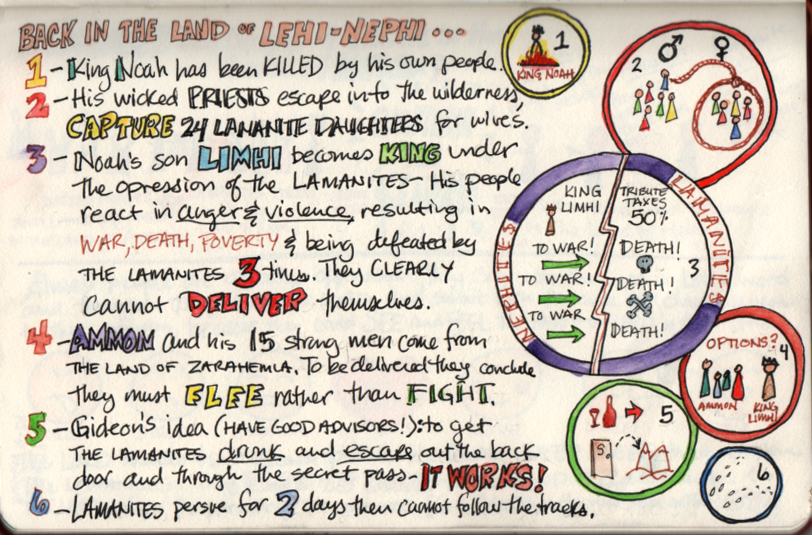 BACK IN THE LAND OF LEHI-NEPHI...
1 - King Noah has been KILLED by his own people.
2 - His wicked PRIESTS escape into the wilderness,
CAPTURE 24 LANANITE DAUGHTERS for wives.
3 - Noah's son LIMHI becomes KING under
the opression of the LAMANITES - His people
react in anger & violence, resulting in
WAR, DEATH, POVERTY & being defeated by
THE LAMANITES 3 times. They CLEARLY
Cannot DELIVER themselves.
4 - AMMON and his 15 strong men come from
THE LAND OF ZARAHEMLA. To be delivered they conclude
they must ELEE rather than FIGHT.
5 - Gideon's idea (HAVE GOOD ADVISORS!): to get
THE LAMANITES drunk and escape out the back
door and through the secret pass - IT WORKS!
6 - LAMANITES persue for 2 days then cannot follow the tracks.
1
KING NOAH
2
♂ ♀
NEPHITES
KING
LIMHI
TO WAR!
TO WAR!
TO WAR
TRIBUTE
TAXES
50%
DEATH!
DEATH!
DEATH!
3
LAMANITES
OPTIONS?
4
AMMON
KING
LIMHI
5
S.
6